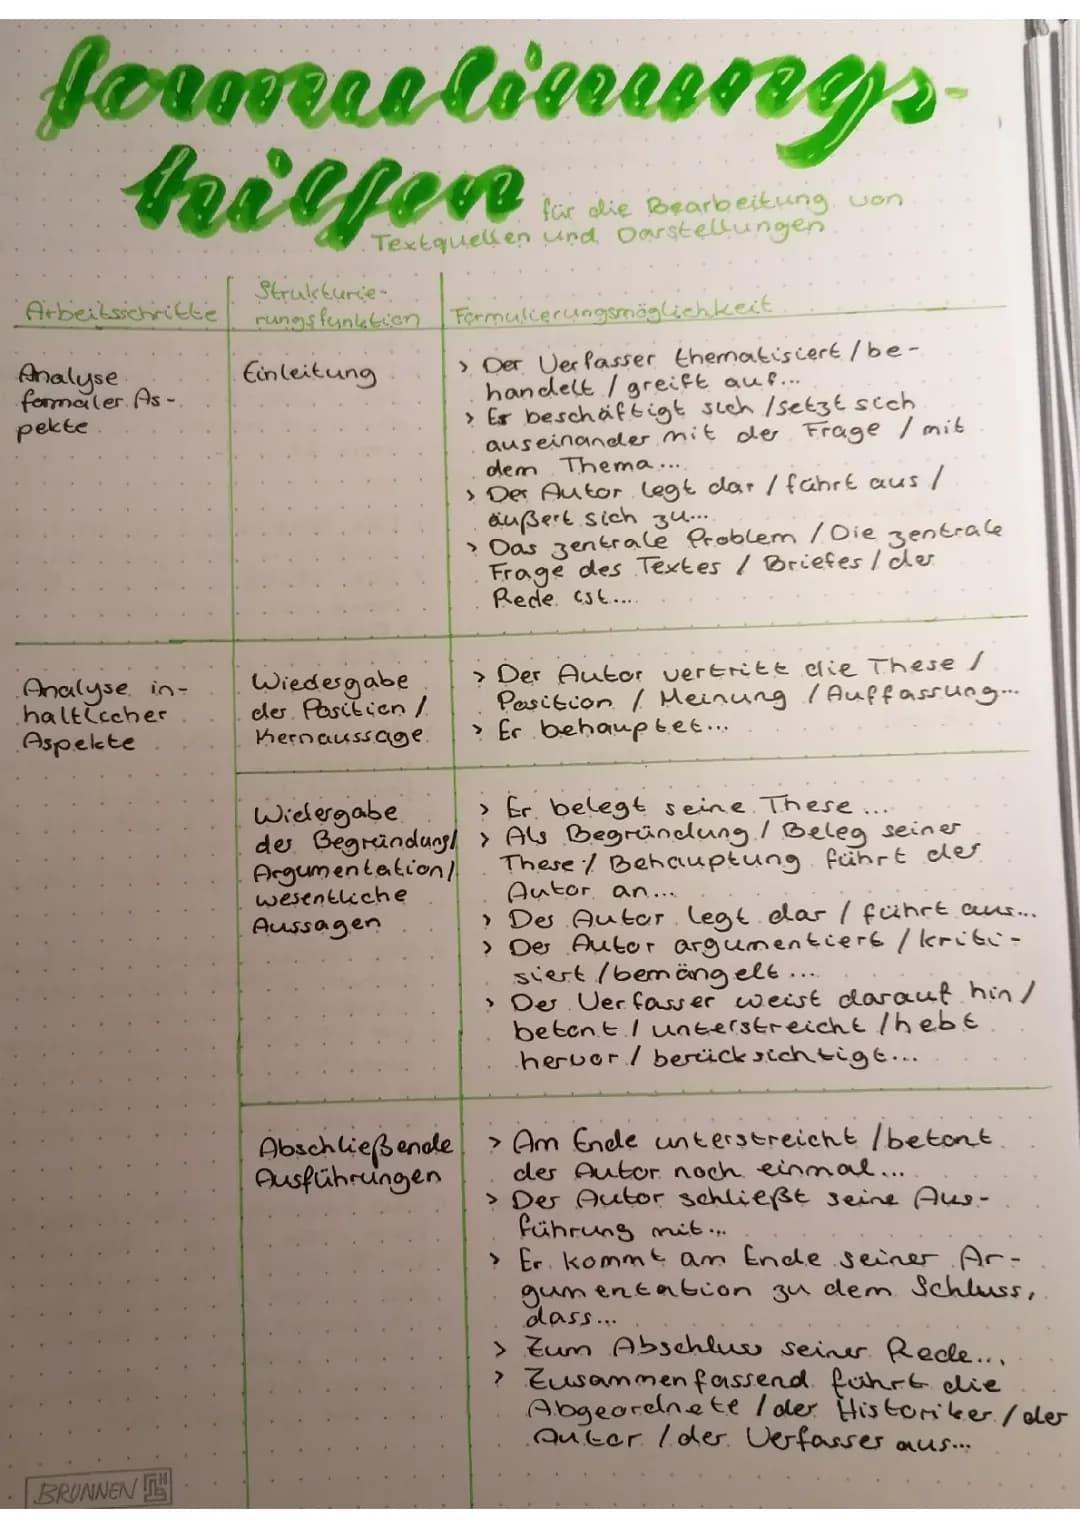 formulierungs-
hilfen
für die Bearbeitung von
Textquellen und Darstellungen
Arbeitsschritte
Strukturie-
rungsfunktion
Formulierungsmöglichkeit
Analyse
formaler As-
pekte
Einleitung
> Der Verfasser thematisiert / be-
handelt / greift auf...
> Er beschäftigt sich / setzt sich
auseinander mit der Frage / mit
dem Thema...
> Der Autor legt dar / führt aus /
äußert sich zu...
> Das zentrale Problem / Die zentrale
Frage des Textes / Briefes / der
Rede ist...
Analyse in-
haltlicher
Aspekte
Wiedergabe
der Position /
Kernaussage
> Der Autor vertritt die These /
Position / Meinung / Auffassung...
> Er behauptet...
Wiedergabe
der Begründung/
Argumentation/
wesentliche
Aussagen
> Er belegt seine These...
> Als Begründung / Beleg seiner
These / Behauptung führt der
Autor an...
> Der Autor legt dar / führt aus...
> Der Autor argumentiert / kriti-
siert / bemängelt...
> Der Verfasser weist darauf hin /
betont / unterstreicht / hebt
hervor / berücksichtigt...
Abschließende
Ausführungen
> Am Ende unterstreicht / betont
der Autor noch einmal...
> Der Autor schließt seine Aus-
führung mit...
> Er kommt am Ende seiner Ar-
gumentation zu dem Schluss,
dass...
> Zum Abschluss seiner Rede...
> Zusammenfassend führt die
Abgeordnete / der Historiker / der
Autor / der Verfasser aus...
BRUNNEN